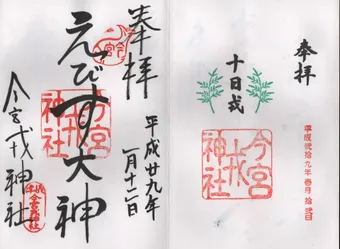 奉拝
十日戎
今宮戎神社
平成弐拾九年壱月拾弐日
奉拝
えびす大神
今宮戎神社
平成廿九年
一月十二日
今宮戎神社